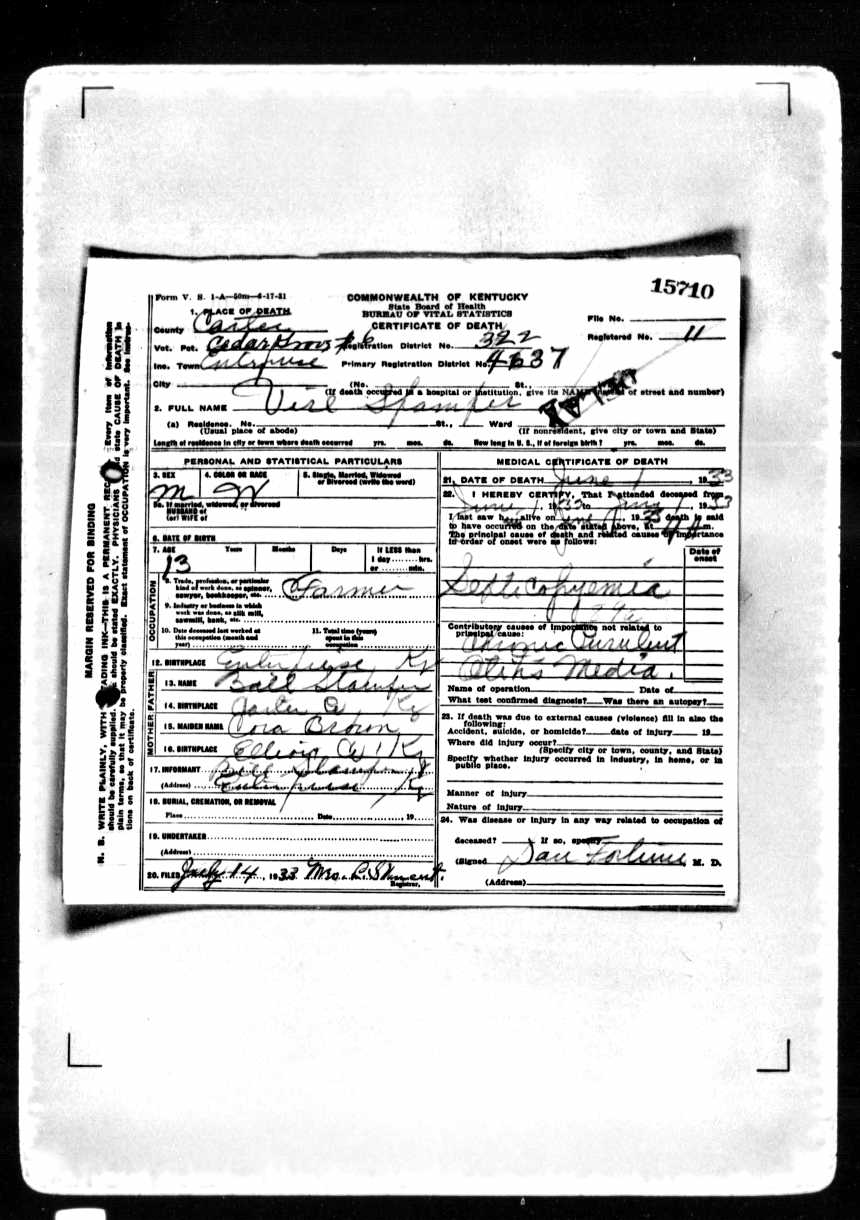 15710
Form V. S. 1-A—50m—4-17-31
COMMONWEALTH OF KENTUCKY
State Board of Health
BUREAU OF VITAL STATISTICS
CERTIFICATE OF DEATH
1. PLACE OF DEATH
County Carter
File No.
Registered No. 11
Vot. Pct. Cedar Grove # 6 Registration District No. 322
Inc. Town Enterprise Primary Registration District No. 4637
City (No. St.,
(If death occurred in a hospital or institution, give its NAME instead of street and number)
2. FULL NAME Virl Stamper
DELAY
(a) Residence. No. St., Ward
(Usual place of abode) (If nonresident, give city or town and State)
Length of residence in city or town where death occurred yrs. mos. ds. How long in U. S., if of foreign birth? yrs. mos. ds.
PERSONAL AND STATISTICAL PARTICULARS
3. SEX 4. COLOR OR RACE 5. Single, Married, Widowed
or Divorced (write the word)
M W
5a. If married, widowed, or divorced
HUSBAND of
(or) WIFE of
6. DATE OF BIRTH
7. AGE Years Months Days If LESS than
1 day hrs.
or min.
13
OCCUPATION
8. Trade, profession, or particular
kind of work done, as spinner,
sawyer, bookkeeper, etc. Farmer
9. Industry or business in which
work was done, as silk mill,
sawmill, bank, etc.
10. Date deceased last worked at
this occupation (month and
year)
11. Total time (years)
spent in this
occupation
12. BIRTHPLACE Enterprise Ky
FATHER
13. NAME Ball Stamper
14. BIRTHPLACE Carter Co Ky
MOTHER
15. MAIDEN NAME Cora Brown
16. BIRTHPLACE Elliott Co Ky
17. INFORMANT Ball Stamper
(Address) Enterprise Ky
18. BURIAL, CREMATION, OR REMOVAL
Place Date 19
19. UNDERTAKER
(Address)
20. FILED July 14, 1933 Mrs.
Registrar.
MEDICAL CERTIFICATE OF DEATH
21. DATE OF DEATH June 1 1933
22. I HEREBY CERTIFY, That I attended deceased from
June 1, 1933 to June 1, 1933
I last saw him alive on June 1, 1933 death is said
to have occurred on the date stated above, at m.
The principal cause of death and related causes of importance
in order of onset were as follows:
Date of
onset
Septicopyemia
24a
Contributory causes of importance not related to
principal cause:
Chronic Purulent
Otitis Media.
Name of operation Date of
What test confirmed diagnosis? Was there an autopsy?
23. If death was due to external causes (violence) fill in also the
following:
Accident, suicide, or homicide? date of injury 19
Where did injury occur?
(Specify city or town, county, and State)
Specify whether injury occurred in industry, in home, or in
public place.
Manner of injury
Nature of injury
24. Was disease or injury in any way related to occupation of
deceased? If so, specify
(Signed Dan Fortune M. D.
(Address)
MARGIN RESERVED FOR BINDING
N. B. WRITE PLAINLY, WITH ADING INK—THIS IS A PERMANENT REC Every item of information
should be carefully supplied. should be stated EXACTLY. PHYSICIANS state CAUSE OF DEATH in
plain terms, so that it may be properly classified. Exact statement of OCCUPATION is very important. See instruc-
tions on back of certificate.